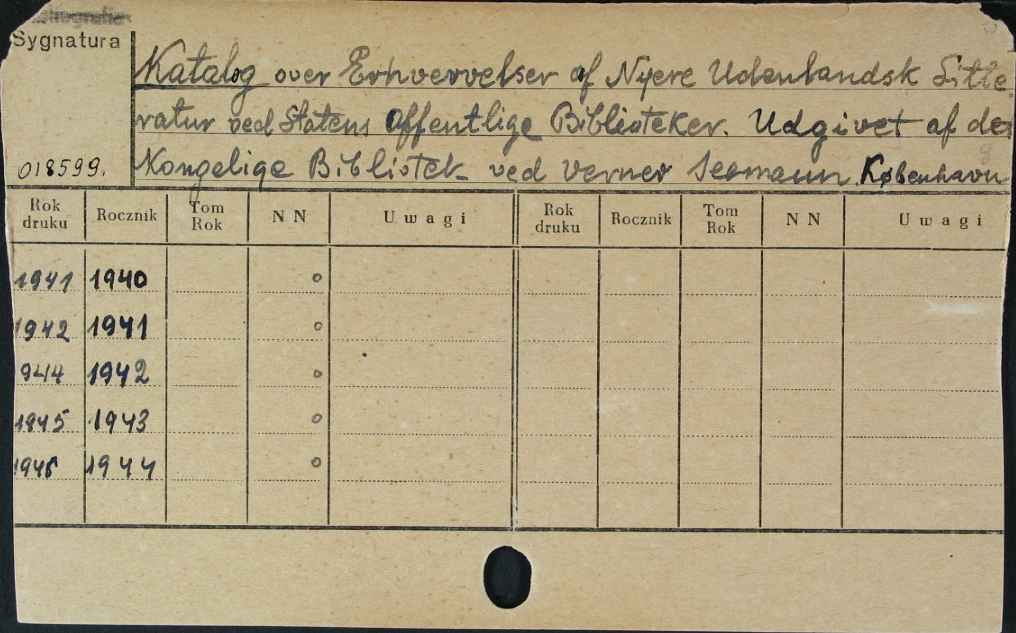 Sygnatura
Katalog over Erhvervelser af Nyere Udenlandsk Litte-
ratur ved Statens Offentlige Biblioteker. Udgivet af det
018599.
Kongelige Bibliotek ved Verner Seemann. København
Rok druku Rocznik Tom Rok N N Uwagi Rok druku Rocznik Tom Rok N N Uwagi
1941 1940 o
1942 1941 o
944 1942 o
1945 1943 o
1946 1944 o